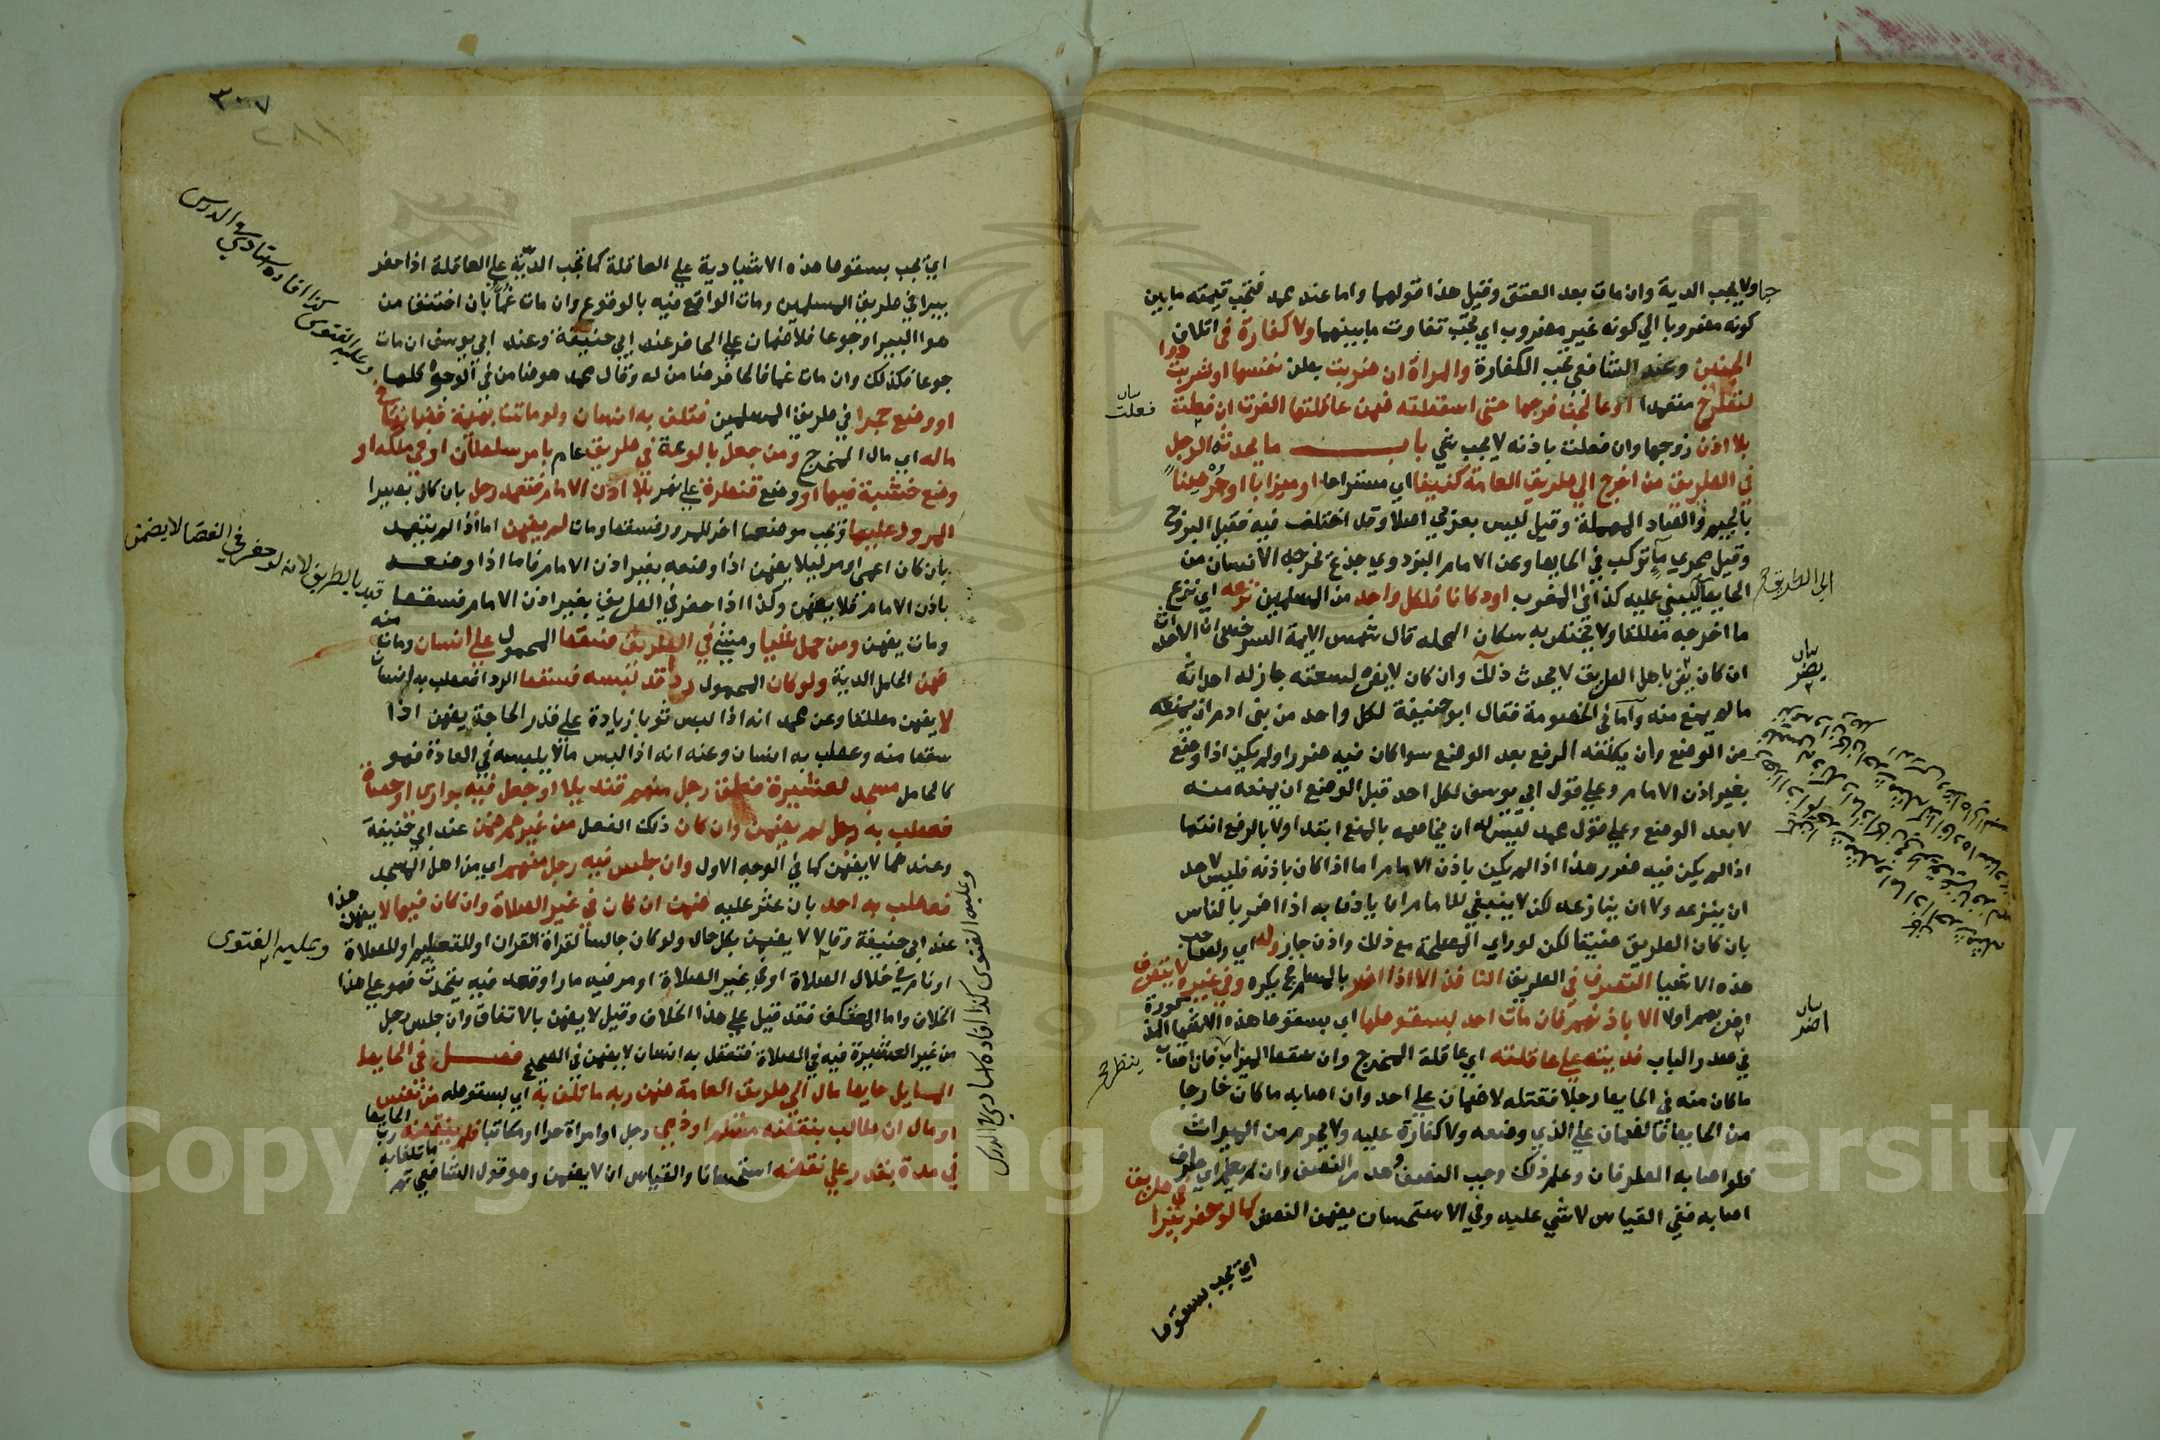 ولا يجب الدية وان مات بعد العتق وقيل هذا قولهما واما عند محمد فتجب قيمته ما بين
كونه مضروبا الي كونه غير مضروب اي يجب تفاوت ما بينهما ولا كفارة في اتلاف
الجنين وعند الشافعي تجب الكفارة والمراة ان ضربت بطن نفسها او شربت دوا
لتطرح متعمدا او عالجت فرجها حتى اسقطته ضمن عاقلتها الغرة ان فعلت
بلا اذن زوجها وان فعلت باذنه لا يجب شي باب ما يحدثه الرجل
في الطريق من اخرج الي طريق العامة كنيفا اي مستراحا او ميزابا او جرصنا
بالجيم والصاد المهملة وقيل ليس بعربي اصلا وقد اختلف فيه فقيل البرج
وقيل مجري ما تركب في الحايط وعن الامام البزدوي جذع يخرجه الانسان من
الحايط ليبني عليه كذا في المغرب او دكانا فلكل واحد من المسلمين نزعه اي نزع
ما اخرجه مطلقا ولا يختص به سكان المحله قال شمس الايمة السرخسي ان الاحداث
ان كان يضر باهل الطريق لا يحدث ذلك وان كان لا يضر لسعته جاز له احداثه
ما لم يمنع منه واما في الخصومة فقال ابو حنيفة لكل واحد من بني ادم ان يمنعه
من الوضع وان يكلفه الرفع بعد الوضع سوا كان فيه ضرر او لم يكن اذا وضع
بغير اذن الامام وعلي قول ابي يوسف لكل احد قبل الوضع ان يمنعه منه
لا بعد الوضع وعلي قول محمد ليس له ان يخاصمه بالمنع ابتدا ولا بالرفع انتها
اذا لم يكن فيه ضرر هذا اذا لم يكن باذن الامام اما اذا كان باذنه فليس لاحد
ان ينزعه ولا ان ينازعه لكن لا ينبغي للامام ان ياذن به اذا اضر بالناس
بان كان الطريق ضيقا لكن لو راي المصلحة مع ذلك واذن جاز وله اي ولصاحب
هذه الاشيا التصرف في الطريق النافذ الا اذا اضر بالمسلمين يكره وفي غيره لا يتصرف
اضر بهم اولا الا باذنهم فان مات احد بسقوطها اي بسقوط هذه الاشيا المذكورة
في صدر الباب فديته علي عاقلته اي عاقلة المخرج وان سقط الميزاب فان اصاب
ما كان منه في الحايط رجلا فقتله لا ضمان علي احد وان اصابه ما كان خارجا
من الحايط فالضمان علي الذي وضعه ولا كفارة عليه ولا يحرم من الميراث
ولو اصابه الطرفان وعلم ذلك وجب النصف وهدر النصف وان لم يعلم اي طرف
اصابه ففي القياس لا شي عليه وفي الاستحسان يضمن النصف كما لو حفر بئرا في طريق
اي تجب بسقوط
بيان
فعلت
الي الطريق
بيان
يضر
بيان
اضر
٣٠٧
٢٨١
اي تجب بسقوط هذه الاشيا دية علي العاقلة كما تجب الدية علي العاقلة اذا حفر
بيرا في طريق المسلمين ومات الواقع فيه بالوقوع وان مات غما بان اختنق من
هوا البير او جوعا فلا ضمان علي الحافر عند ابي حنيفة وعند ابي يوسف ان مات
جوعا فكذلك وان مات غما فالحافر ضامن له وقال محمد هو ضامن في الوجوه كلها
او وضع حجرا في طريق المسلمين فتلف به انسان ولو ماتت بهيمة فضمانها في
ماله اي مال المخرج ومن جعل بالوعة في طريق عام بامر سلطان او في ملكه او
وضع خشبة فيها او وضع قنطرة علي نهر بلا اذن الامام فتعمد رجل بان كان بصيرا
المرور عليها وتجب موضعا اخر للمرور فسقط ومات لم يضمن اما اذا لم يتعمد
بان كان اعمى او مر ليلا يضمن اذا وضعه بغير اذن الامام فاما اذا وضعه
باذن الامام فلا يضمن وكذا اذا حفر في الطريق بغير اذن الامام فسقط
ومات يضمن ومن حمل شيا ومشي في الطريق فسقط المحمول علي انسان ومات منه
ضمن الحامل الدية ولو كان المحمول رداء قد لبسه فسقط الردا فعطب به انسان
لا يضمن مطلقا وعن محمد انه اذا لبس ثوبا زيادة علي قدر الحاجة يضمن اذا
سقط منه وعطب به انسان وعنه انه اذا لبس ما لا يلبسه في العادة فهو
كالحامل مسجد لعشيرة فعلق رجل منهم قنديلا او جعل فيه بواري او حصاة
فعطب به رجل لم يضمن وان كان ذلك الفعل من غيرهم ضمن عند ابي حنيفة
وعندهما لا يضمن كما في الوجه الاول وان جلس فيه رجل منهم اي من اهل المسجد
فعطب به احد بان عثر عليه ضمن ان كان في غير الصلاة وان كان فيها لا يضمن هذا
عند ابي حنيفة وقالا لا يضمن بكل حال ولو كان جالسا لقراة القران او للتعليم او للصلاة
او نام في خلال الصلاة او في غير الصلاة او مر فيه مارا وقعد فيه يتحدث فهو علي هذا
الخلاف واما المعتكف فقد قيل علي هذا الخلاف وقيل لا يضمن بالاتفاق وان جلس رجل
من غير العشيرة فيه في الصلاة فتعقل به انسان لا يضمن في الصحيح فصل في الحايط
المايل حايط مال الي طريق العامة ضمن ربه ما تلف به اي بسقوطه من نفس
او مال ان طالب بنقضه مسلم او ذمي رجل او امراة حرا او مكاتبا فلم ينقضه رب الحايط
في مدة يقدر علي نقضه استحسانا والقياس ان لا يضمن وهو قول الشافعي
وعليه الفتوى كذا افاده استادي في الدرس
قيد بالطريق لانه لو حفر في الفضا لا يضمن
وعليه الفتوى
وعليه الفتوى كذا افاده استادي في الدرس